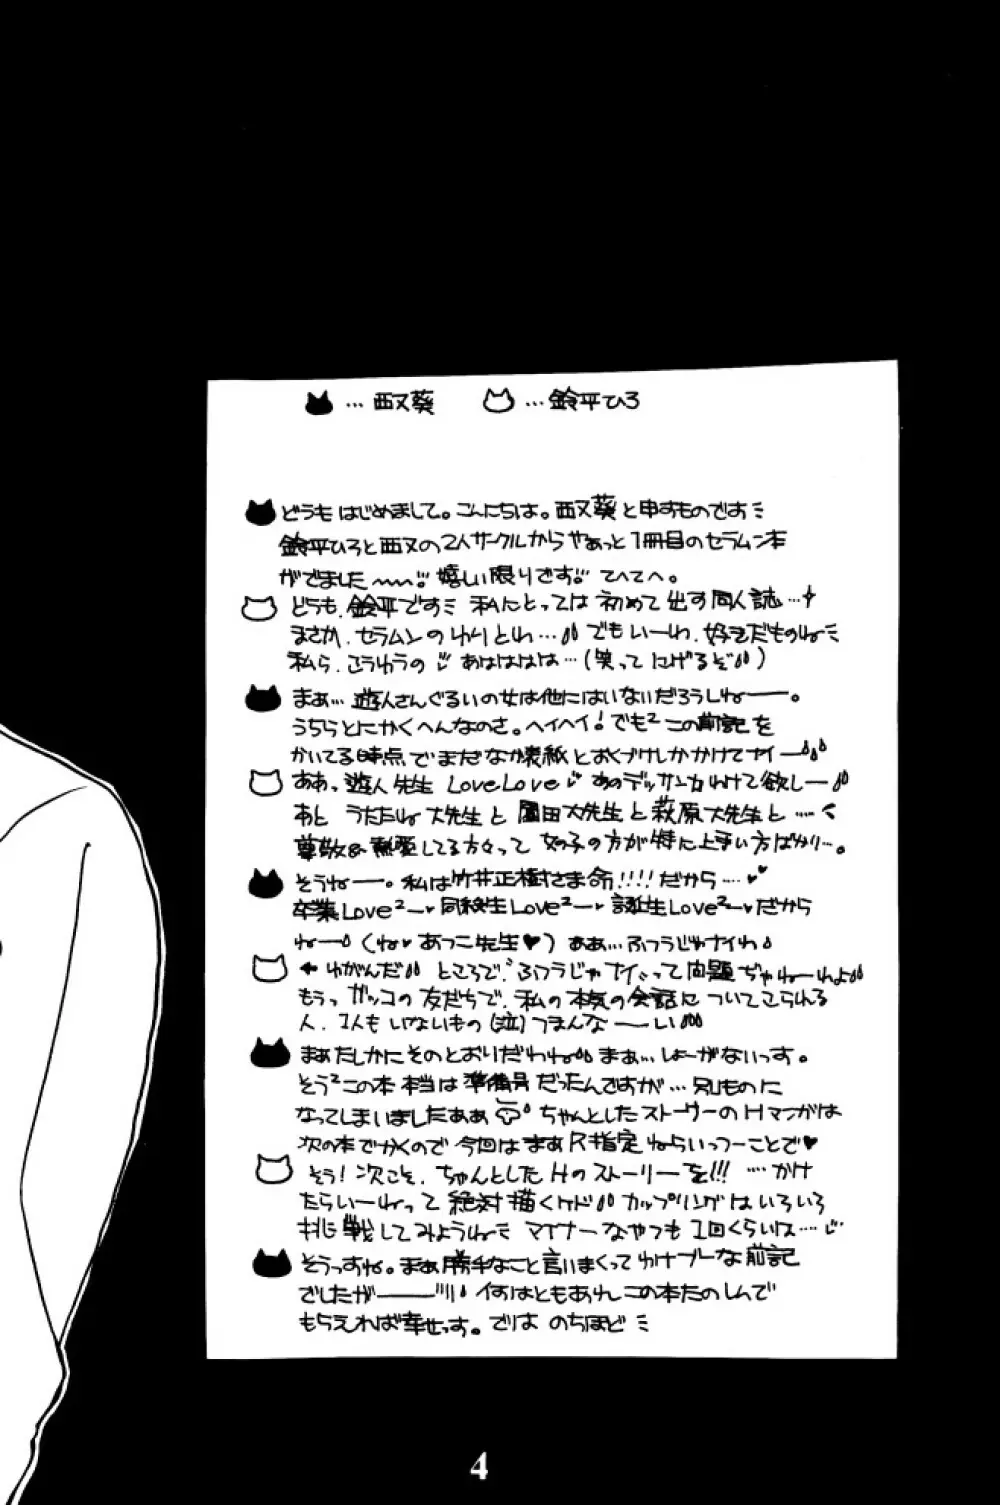 …西又葵 …鈴平ひろ
どうもはじめまして。こんにちは。西又葵と申すものです
鈴平ひろと西又の2人サークルからやあっと1冊目のセラムン本
がでました〜〜!! 嬉しい限りです!! てへてへ。
どうも、鈴平です 私にとっては初めて出す同人誌…
まさか、セラムンのわりとわ… でもいーわ、好きだものね
私ら、こうゆうの あはははは…(笑ってにげるぞ)
まぁ…遊人さんぐるいの女は他にはいないだろうしねー。
うちらとにかくへんなのさ。ヘイヘイ! でも²この前記を
かいてる時点でまだなか表紙とおくづけしかかけてナイー
ああ、遊人先生 LoveLove あのデッサン力わけて欲しー
あと うたたね大先生と園田大先生と萩原大先生と……
尊敬&熱愛してる方々って女の子の方が特に上手い方ばかり…。
そうねー。私は竹井正樹さま命!!!!だから…♥♥
卒業Love²ー♥同級生Love²ー♥誕生Love²ー♥だから
ねー(ね♥あつこ先生♥) ああ…ふつうじゃナイわ
←ゆがんだ ところで、ふつうじゃナイ、って問題ぢゃねーわよ
もうっガッコの友だちで、私の本気の会話についてこられる
人、1人もいないもの(泣)つまんなーい
まあたしかにそのとおりだわね まぁ…しょーがないっす。
そう²この本 本当は準備号だったんですが…別ものに
なってしまいましたああ ちゃんとしたストーリーのHマンガは
次の本でかくので今回はまあR指定ねらいっつーことで♥
そう!次こそ、ちゃんとしたHのストーリーを!!! …かけ
たらいーねって 絶対描くケド カップリングはいろいろ
挑戦してみようね マイナーなやつも1回くらいは……
そうっすね。まあ勝手なこと言いまくってわけプーな前記
でしたがー!!!! 何はともあれこの本たのしんで
もらえれば幸せっす。では のちほど
4